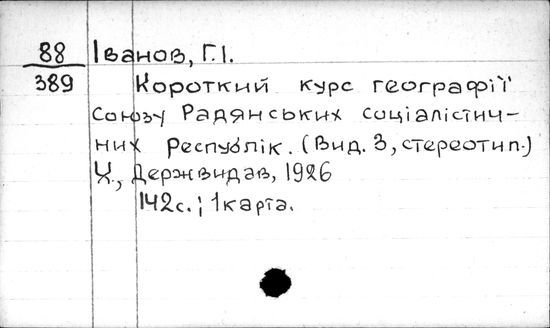 88 Іванов, Г.І.
389 Короткий курс географії
Союзу Радянських соціалістич-
них Республік. (Вид. 3, стереотип.)
Х., Держвидав, 1926
142с.; 1 карта.